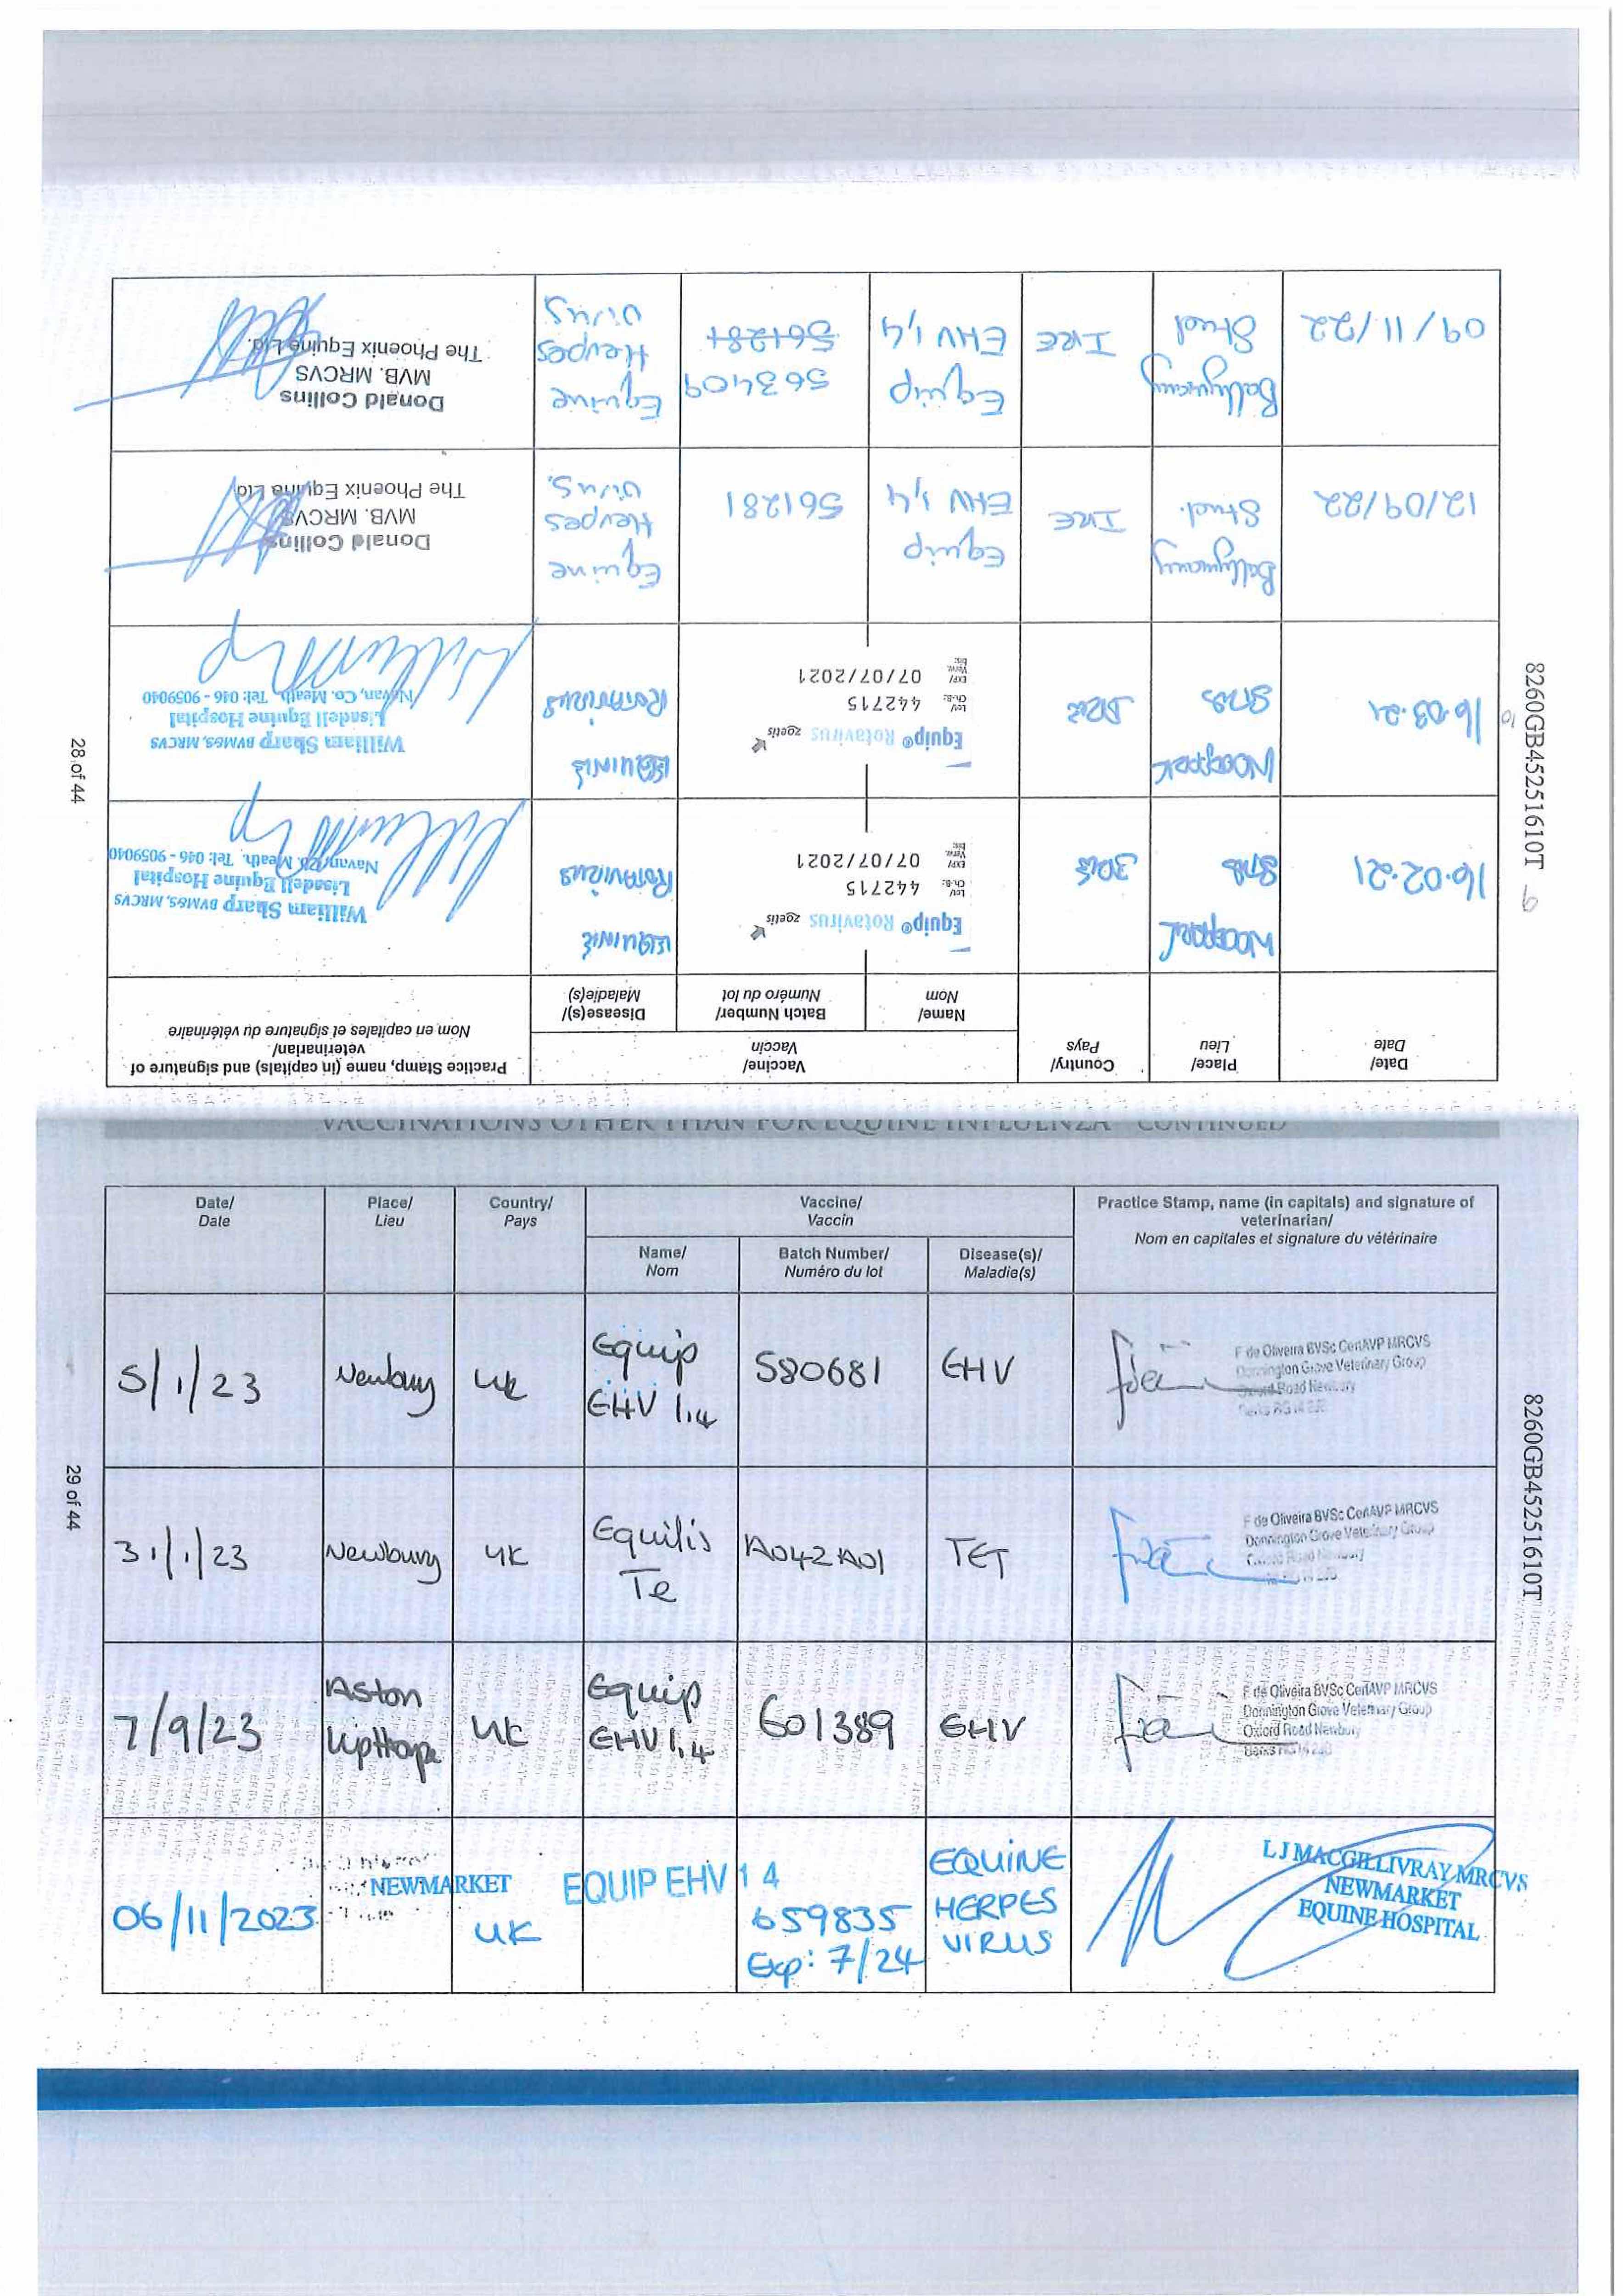 Date/
Date
Place/
Lieu
Country/
Pays
Vaccine/
Vaccin
Practice Stamp, name (in capitals) and signature of
veterinarian/
Nom en capitales et signature du vétérinaire
Name/
Nom
Batch Number/
Numéro du lot
Disease(s)/
Maladie(s)
16.02.21
Woodpark
Stud
IRE
Equip® Rotavirus zoetis
Lot/
Ch-B.:
442715
EXP/
Verw.
bis:
07/07/2021
EQUINE
ROTAVIRUS
William Sharp BVM&S, MRCVS
Lisadell Equine Hospital
Navan, Co. Meath. Tel: 046 - 9059040
16.03.21
Woodpark
Stud
IRE
Equip® Rotavirus zoetis
Lot/
Ch-B.:
442715
EXP/
Verw.
bis:
07/07/2021
EQUINE
ROTAVIRUS
William Sharp BVM&S, MRCVS
Lisadell Equine Hospital
Navan, Co. Meath. Tel: 046 - 9059040
12/09/22
Ballymany
Stud.
IRE
Equip
EHV 1,4
561281
Equine
Herpes
Virus.
Donald Collins
MVB. MRCVS
The Phoenix Equine Ltd
09/11/22
Ballymany
Stud
IRE
Equip
EHV 1,4
563409
561281
Equine
Herpes
Virus
Donald Collins
MVB. MRCVS
The Phoenix Equine Ltd.
28 of 44
8260GB45251610T
VACCINATIONS OTHER THAN FOR EQUINE INFLUENZA CONTINUED
Date/
Date
Place/
Lieu
Country/
Pays
Vaccine/
Vaccin
Practice Stamp, name (in capitals) and signature of
veterinarian/
Nom en capitales et signature du vétérinaire
Name/
Nom
Batch Number/
Numéro du lot
Disease(s)/
Maladie(s)
5/1/23
Newbury
UK
Equip
EHV 1,4
580681
EHV
F de Oliveira BVSc CertAVP MRCVS
Donnington Grove Veterinary Group
Oxford Road Newbury
31/1/23
Newbury
UK
Equilis
Te
A042A01
TET
F de Oliveira BVSc CertAVP MRCVS
Donnington Grove Veterinary Group
Oxford Road Newbury
7/9/23
Aston
UK
Equip
EHV 1,4
601389
EHV
F de Oliveira BVSc CertAVP MRCVS
Donnington Grove Veterinary Group
Oxford Road Newbury
06/11/2023
NEWMARKET
UK
EQUIP EHV 1 4
659835
Exp: 7/24
EQUINE
HERPES
VIRUS
L J MACGILLIVRAY MRCVS
NEWMARKET
EQUINE HOSPITAL
29 of 44
8260GB45251610T